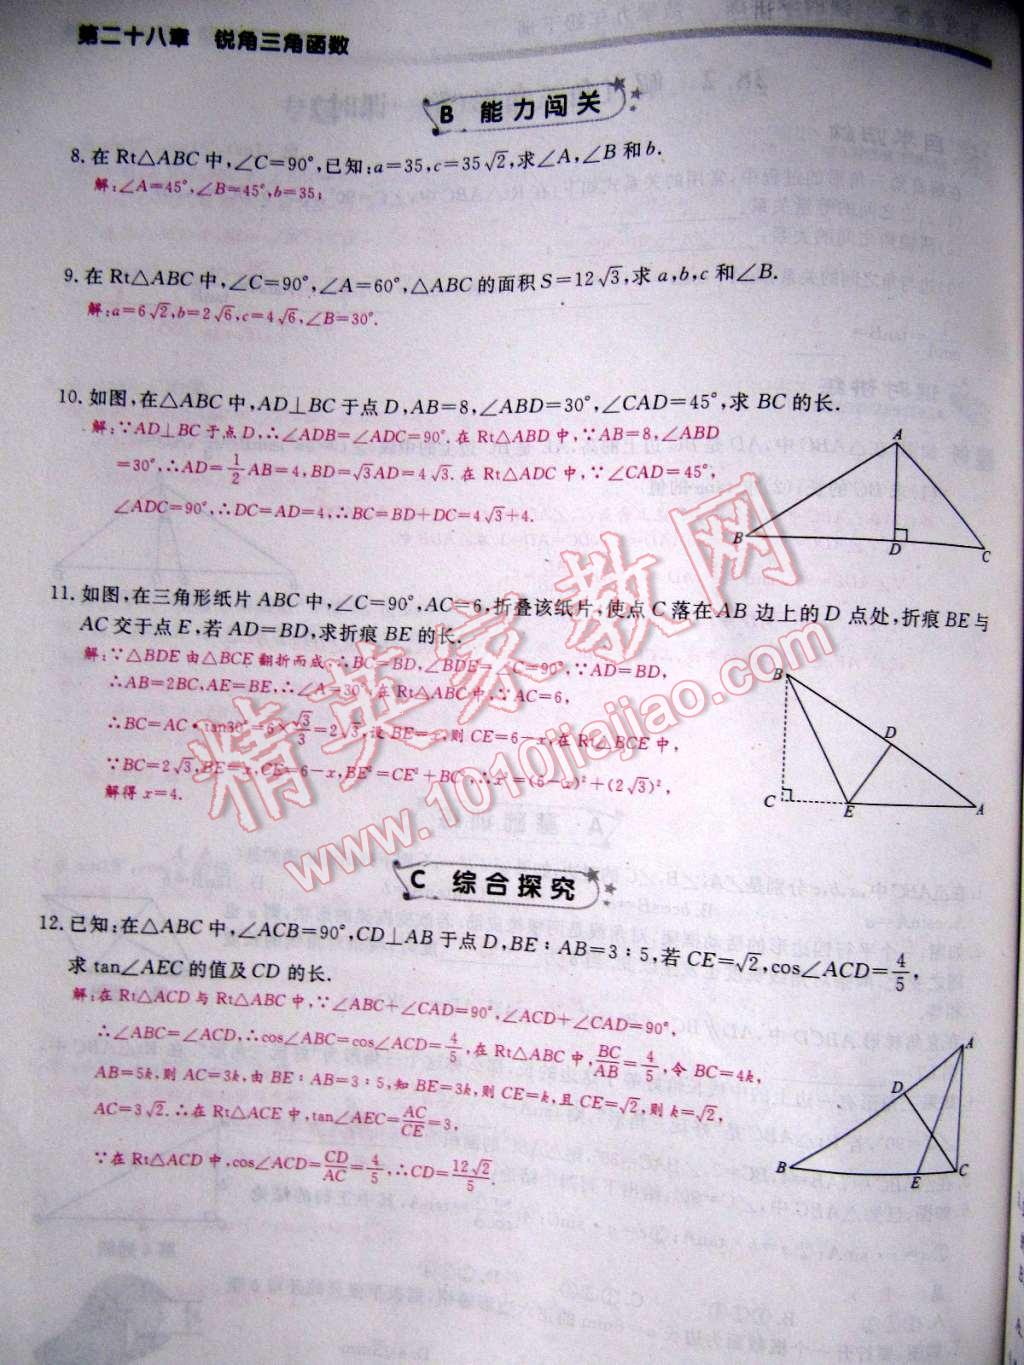 第二十八章 锐角三角函数
B 能力闯关
8. 在 Rt△ABC 中,∠C=90°,已知:a=35,c=35√2,求∠A,∠B 和 b.
解:∠A=45°,∠B=45°,b=35;
9. 在 Rt△ABC 中,∠C=90°,∠A=60°,△ABC 的面积 S=12√3,求 a,b,c 和∠B.
解:a=6√2,b=2√6,c=4√6,∠B=30°.
10. 如图,在△ABC 中,AD⊥BC 于点 D,AB=8,∠ABD=30°,∠CAD=45°,求 BC 的长.
解:∵AD⊥BC 于点 D,∴∠ADB=∠ADC=90°.在 Rt△ABD 中,∵AB=8,∠ABD
=30°,∴AD=1/2AB=4,BD=√3AD=4√3.在 Rt△ADC 中,∵∠CAD=45°,
∠ADC=90°,∴DC=AD=4,∴BC=BD+DC=4√3+4.
A
B
D
C
11. 如图,在三角形纸片 ABC 中,∠C=90°,AC=6,折叠该纸片,使点 C 落在 AB 边上的 D 点处,折痕 BE 与
AC 交于点 E,若 AD=BD,求折痕 BE 的长.
解:∵△BDE 由△BCE 翻折而成,∴BC=BD,∠BDE=∠C=90°,∵AD=BD,
∴AB=2BC,AE=BE,∴∠A=30°,在 Rt△ABC 中,∵AC=6,
∴BC=AC·tan30°=6×√3/3=2√3,设 BE=x,则 CE=6-x,在 Rt△BCE 中,
∵BC=2√3,BE=x,CE=6-x,BE²=CE²+BC²,∴x²=(6-x)²+(2√3)²,
解得 x=4.
B
D
C
E
A
精英家教网
www.1010jiajiao.com
C 综合探究
12. 已知:在△ABC 中,∠ACB=90°,CD⊥AB 于点 D,BE∶AB=3∶5,若 CE=√2,cos∠ACD=4/5,
求 tan∠AEC 的值及 CD 的长.
解:在 Rt△ACD 与 Rt△ABC 中,∵∠ABC+∠CAD=90°,∠ACD+∠CAD=90°,
∴∠ABC=∠ACD,∴cos∠ABC=cos∠ACD=4/5,在 Rt△ABC 中,BC/AB=4/5,令 BC=4k,
AB=5k,则 AC=3k,由 BE∶AB=3∶5,知 BE=3k,则 CE=k,且 CE=√2,则 k=√2,
AC=3√2.∴在 Rt△ACE 中,tan∠AEC=AC/CE=3,
∵在 Rt△ACD 中,cos∠ACD=CD/AC=4/5,∴CD=12√2/5.
A
D
B
E
C